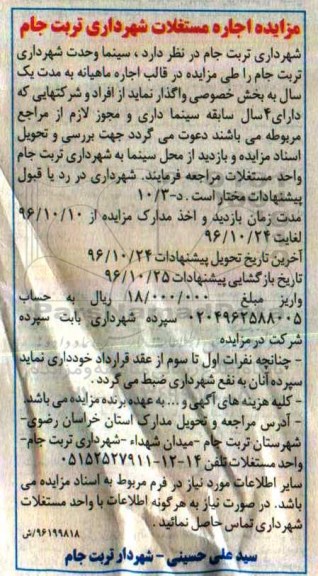 مزایده اجاره مستغلات شهرداری تربت جام
شهرداری تربت جام در نظر دارد ، سینما وحدت شهرداری
تربت جام را طی مزایده در قالب اجاره ماهیانه به مدت یک
سال به بخش خصوصی واگذار نماید از افراد و شرکتهایی که
دارای۴سال سابقه سینما داری و مجوز لازم از مراجع
مربوطه می باشند دعوت می گردد جهت بررسی و تحویل
اسناد مزایده و بازدید از محل سینما به شهرداری تربت جام
واحد مستغلات مراجعه فرمایند. شهرداری در رد یا قبول
پیشنهادات مختار است . د-۱۰/۳
مدت زمان بازدید و اخذ مدارک مزایده از ۹۶/۱۰/۱۰
لغایت ۹۶/۱۰/۲۴
آخرین تاریخ تحویل پیشنهادات ۹۶/۱۰/۲۴
تاریخ بازگشایی پیشنهادات ۹۶/۱۰/۲۵
واریز مبلغ ۱۸/۰۰۰/۰۰۰ ریال به حساب
۰۲۰۴۹۶۲۵۸۸۰۰۵ سپرده شهرداری بابت سپرده
شرکت در مزایده
- چنانچه نفرات اول تا سوم از عقد قرارداد خودداری نماید
سپرده آنان به نفع شهرداری ضبط می گردد .
- کلیه هزینه های آگهی و ... به عهده برنده مزایده می باشد.
- آدرس مراجعه و تحویل مدارک استان خراسان رضوی-
شهرستان تربت جام -میدان شهداء -شهرداری تربت جام-
واحد مستغلات تلفن ۱۴-۱۲-۰۵۱۵۲۵۲۷۹۱۱
سایر اطلاعات مورد نیاز در فرم مربوط به اسناد مزایده می
باشد. در صورت نیاز به هرگونه اطلاعات با واحد مستغلات
شهرداری تماس حاصل نمائید .
۹۶۱۹۹۸۱۸/ش
سید علی حسینی - شهردار تربت جام